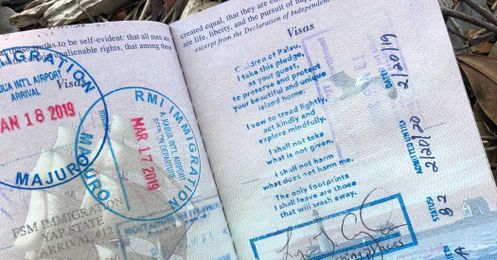 ths to be self-evident: that all men are
alienable rights, that among these
Visas
IMMIGRATION
INT'L AIRPORT
ARRIVAL
JAN 18 2019
MAJURO
RMI IMMIGRATION
MAJURO
INT'L AIRPORT
MAR 17 2019
FSM IMMIGRATION
YAP STATE
ARRIVAL #12
created equal, that they are
are life, liberty, and the pursuit of
excerpt from the Declaration of Independence
Visas
Children of Palau,
I take this pledge,
as your guest,
to preserve and protect
your beautiful and unique
island home.
I vow to tread lightly,
act kindly and
explore mindfully.
I shall not take
what is not given.
I shall not harm
what does not harm me.
The only footprints
I shall leave are those
that will wash away.
DATE
2/20/19
ADMITTED UNTIL
2/20/20
STATUS
B2